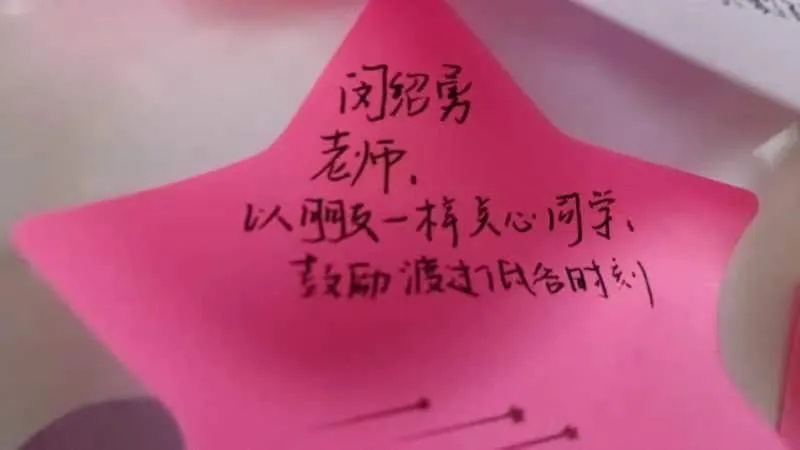 闵绍勇
老师,
以朋友一样关心同学、
鼓励渡过低谷时刻